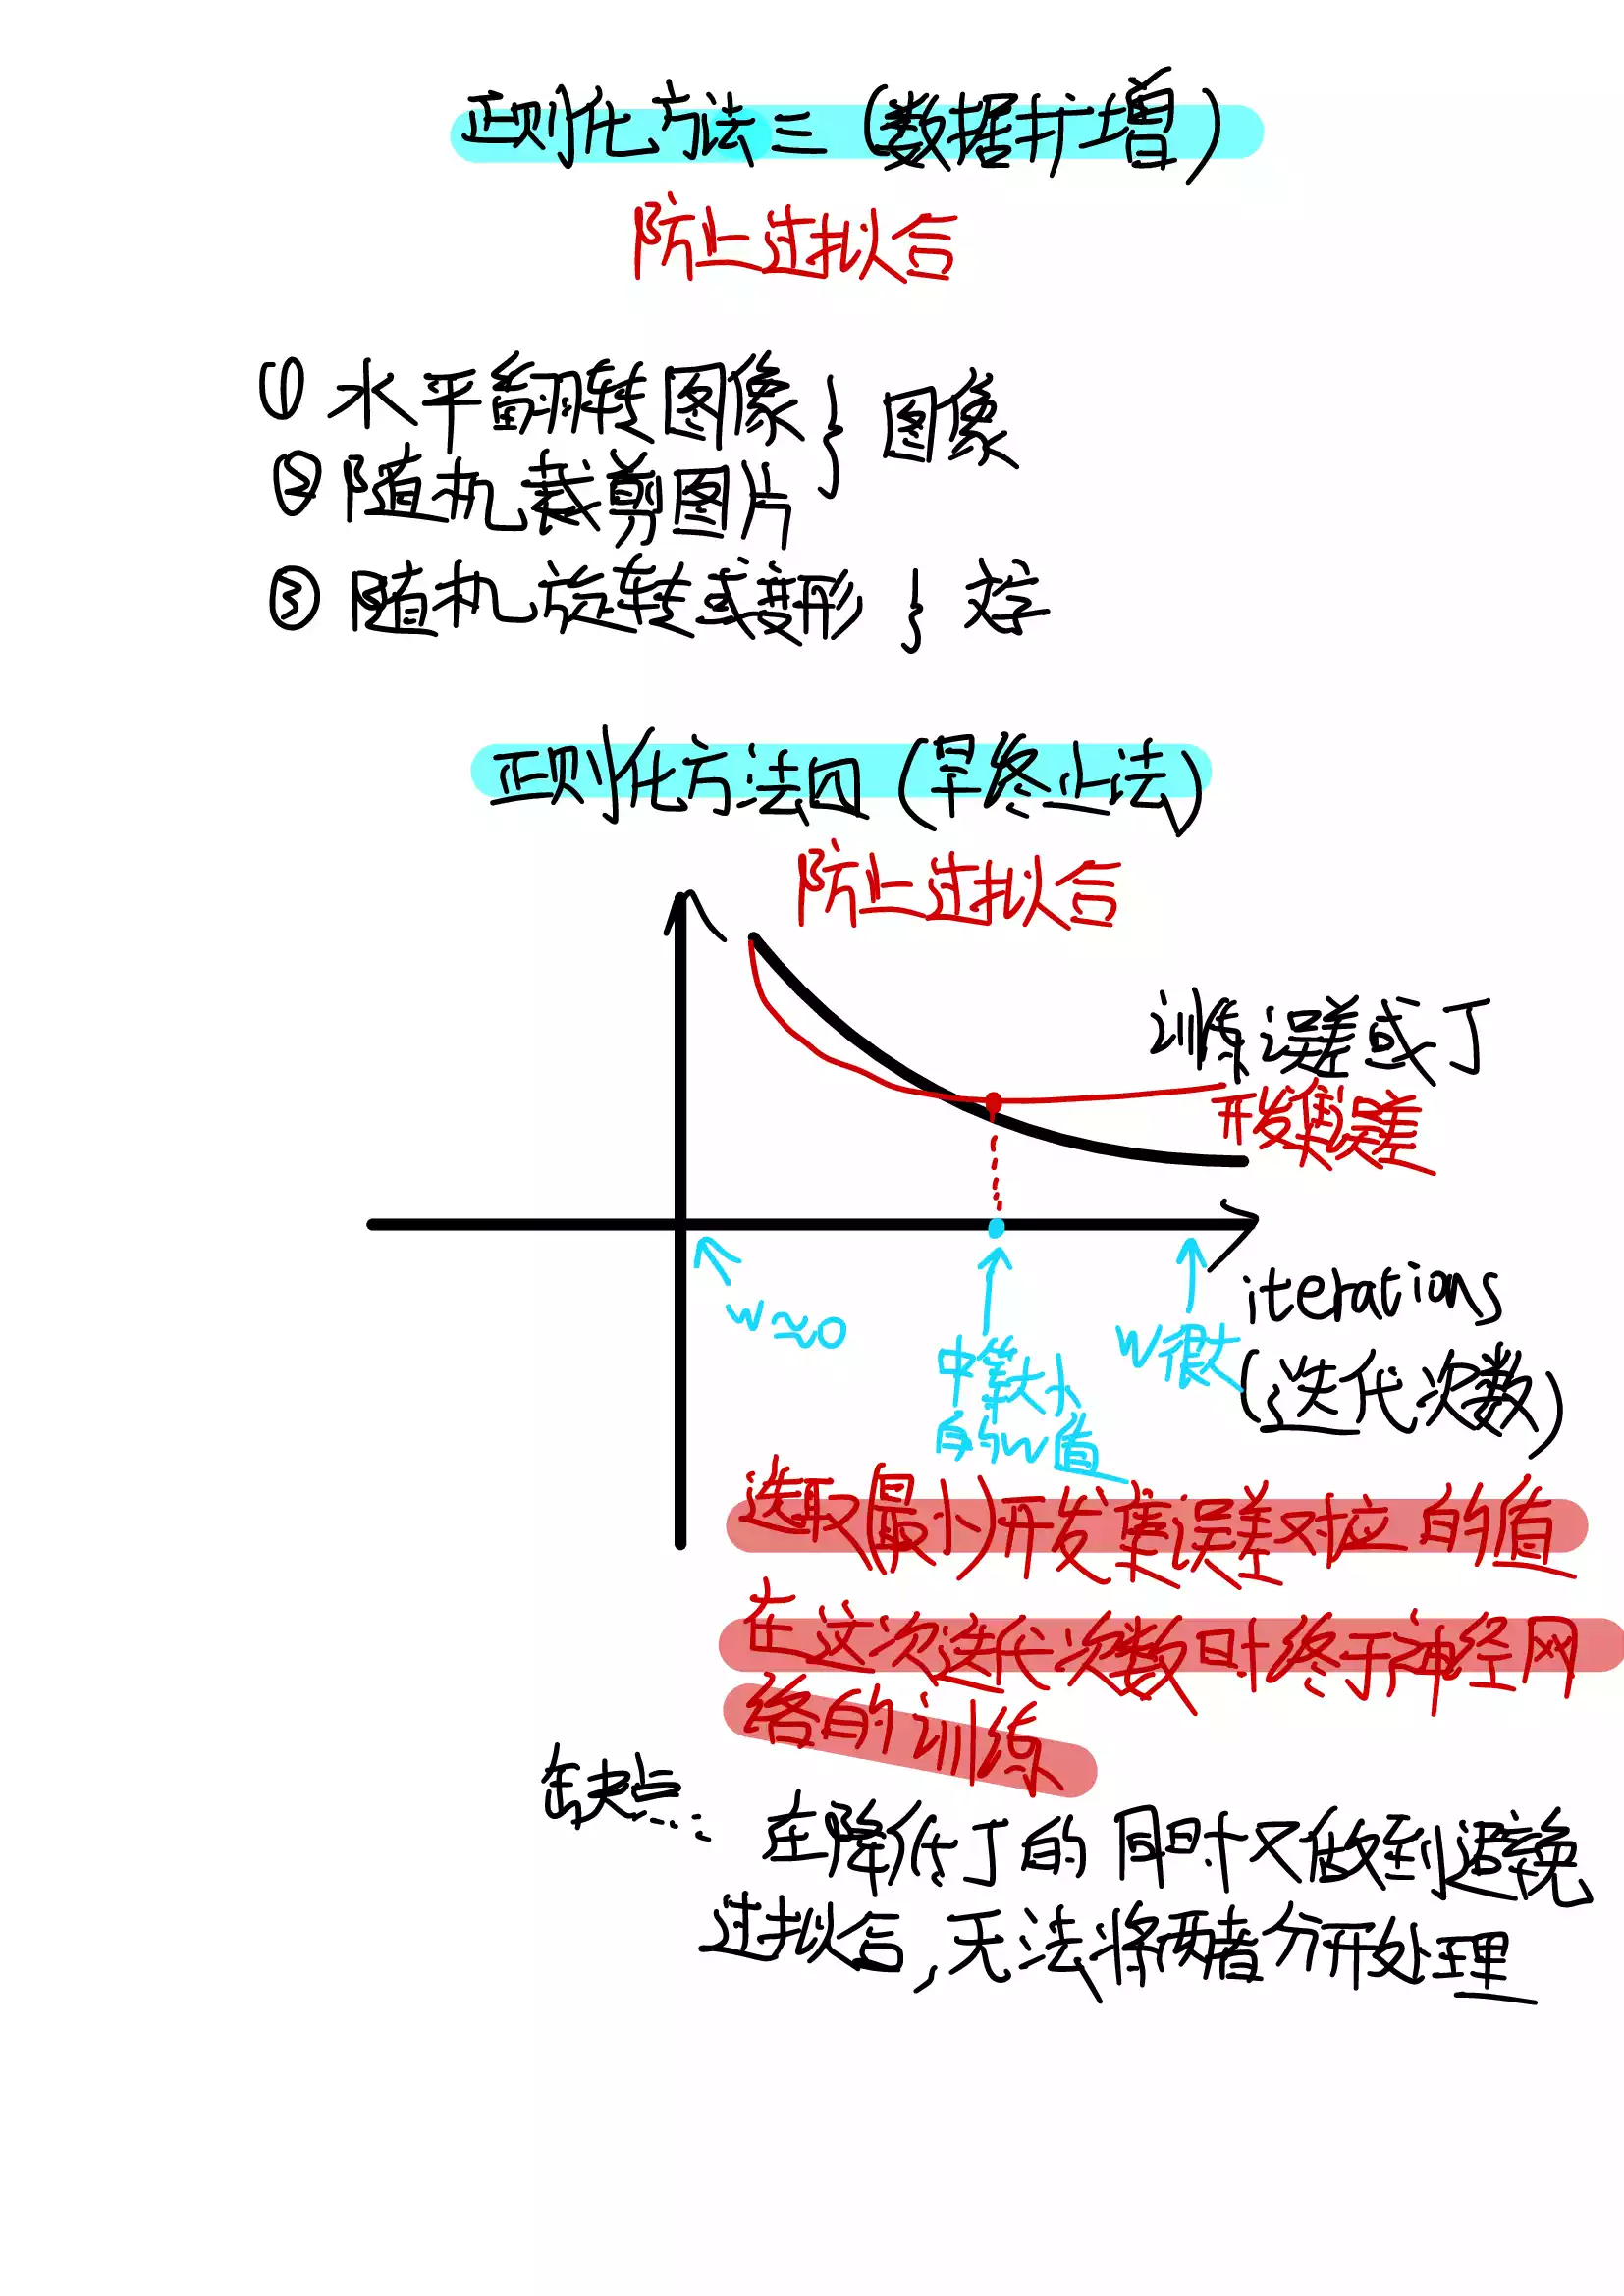 正则化方法三（数据扩增）
防止过拟合
① 水平翻转图像 } 图像
② 随机裁剪图片
③ 随机旋转或变形 } 文字
正则化方法四（早终止法）
防止过拟合
训练误差或J
开发集误差
w≈0
中等大小
的w值
w很大
iterations
(迭代次数)
选取(最小)开发集误差对应的值
在这次迭代次数时终于神经网
络的训练
缺点:
在降低J的同时又做到避免
过拟合,无法将两者分开处理